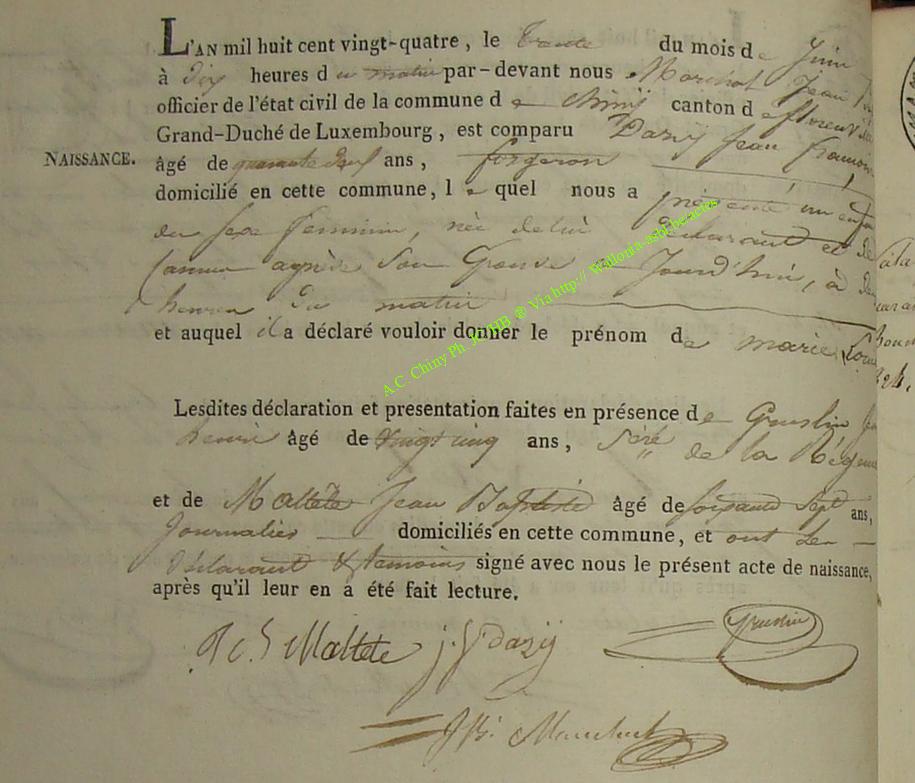 L'AN mil huit cent vingt-quatre, le trente du mois de Juin
à dix heures du matin par-devant nous Marchot Jean
officier de l'état civil de la commune de chiny canton de florenville
Grand-Duché de Luxembourg, est comparu Dazij Jean françois
NAISSANCE.
âgé de quarante neuf ans, forgeron
domicilié en cette commune, le quel nous a présenté un enfant
du sexe féminin, née de lui déclarant et de
agnès son Epouse Jourd'hui, à
heures du matin
et auquel il a déclaré vouloir donner le prénom de marie
Lesdites déclaration et presentation faites en présence de Gruslin
henri âgé de vingt cinq ans, Séré de la Régence
et de Maltete Jean Baptiste âgé de soixante sept ans,
Journalier domiciliés en cette commune, et ont les
déclarant & temoins signé avec nous le présent acte de naissance,
après qu'il leur en a été fait lecture.
Maltete j. f Dazij Gruslin
A.C. Chiny Ph. JCHB ® Via http://Wallonia-asbl.be/actes